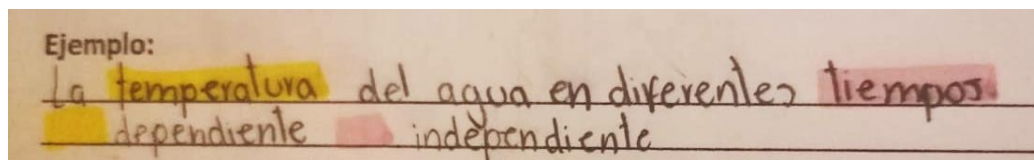 Ejemplo:
La temperatura del agua en diferentes tiempos.
dependiente independiente